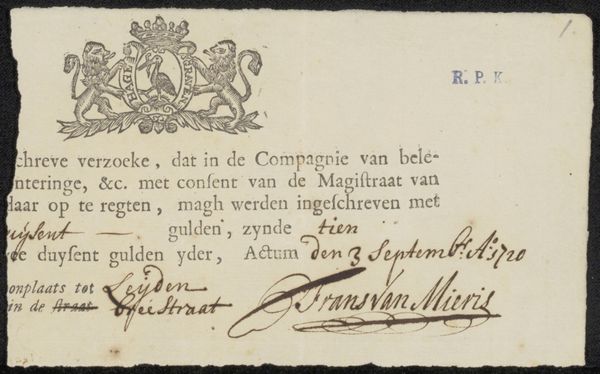 1.
HAGE GRAVEN
R. P. K.
chreve verzoeke, dat in de Compagnie van bele-
nteringe, &c. met conſent van de Magiſtraat van
daar op te regten, magh werden ingeſchreven met
uijsent — gulden, zynde tien
ee duyſent gulden yder, Actum den 3 Septemb.r A.o 1720
onplaats tot Leijden
in de straat breestraat
Frans van Mieris